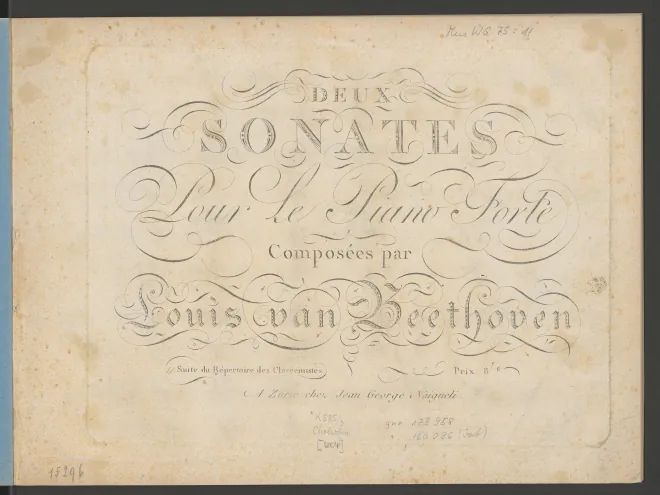 Mus WB 75 : 11
DEUX
SONATES
Pour Le Piano Forte
Composées par
Louis van Beethoven
Suite du Répertoire des Clavecinistes
Prix 8
A Zuric chez Jean George Naigueli
[1804]
178 958
180 786
18296